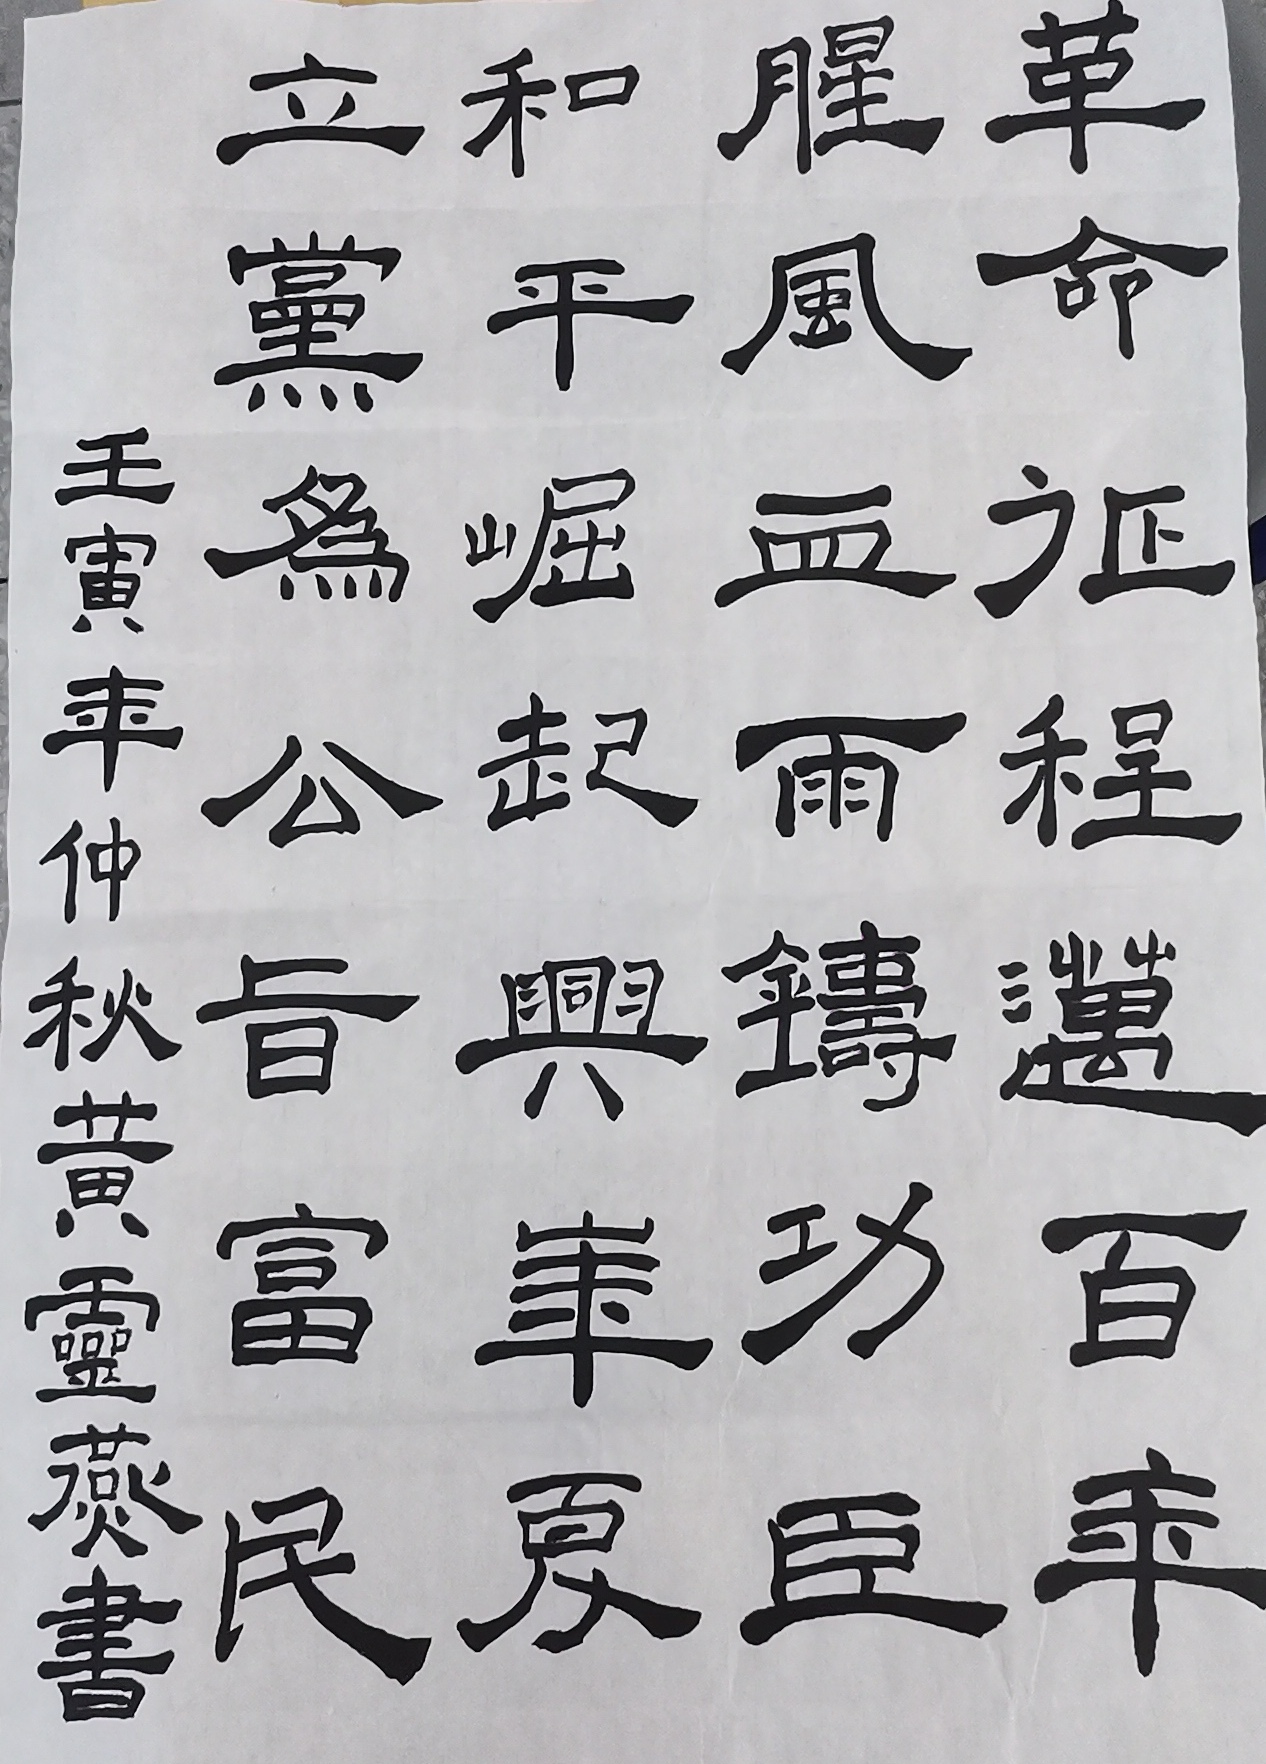 革命征程邁百年
腥風血雨鑄功臣
和平崛起興華夏
立黨為公旨富民
壬寅年仲秋黄靈燕書